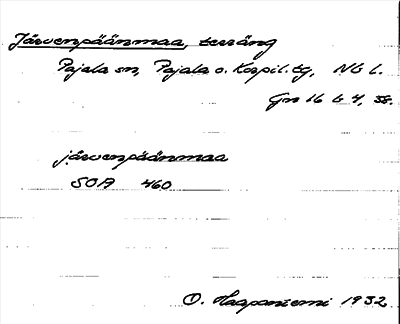 Järvenpäänmaa, terräng
Pajala sn, Pajala o. Korpil. tg, Nb l.
Gn 16 b 4, 58.
järvenpäänmaa
SOA 460
O. Haapaniemi 1932